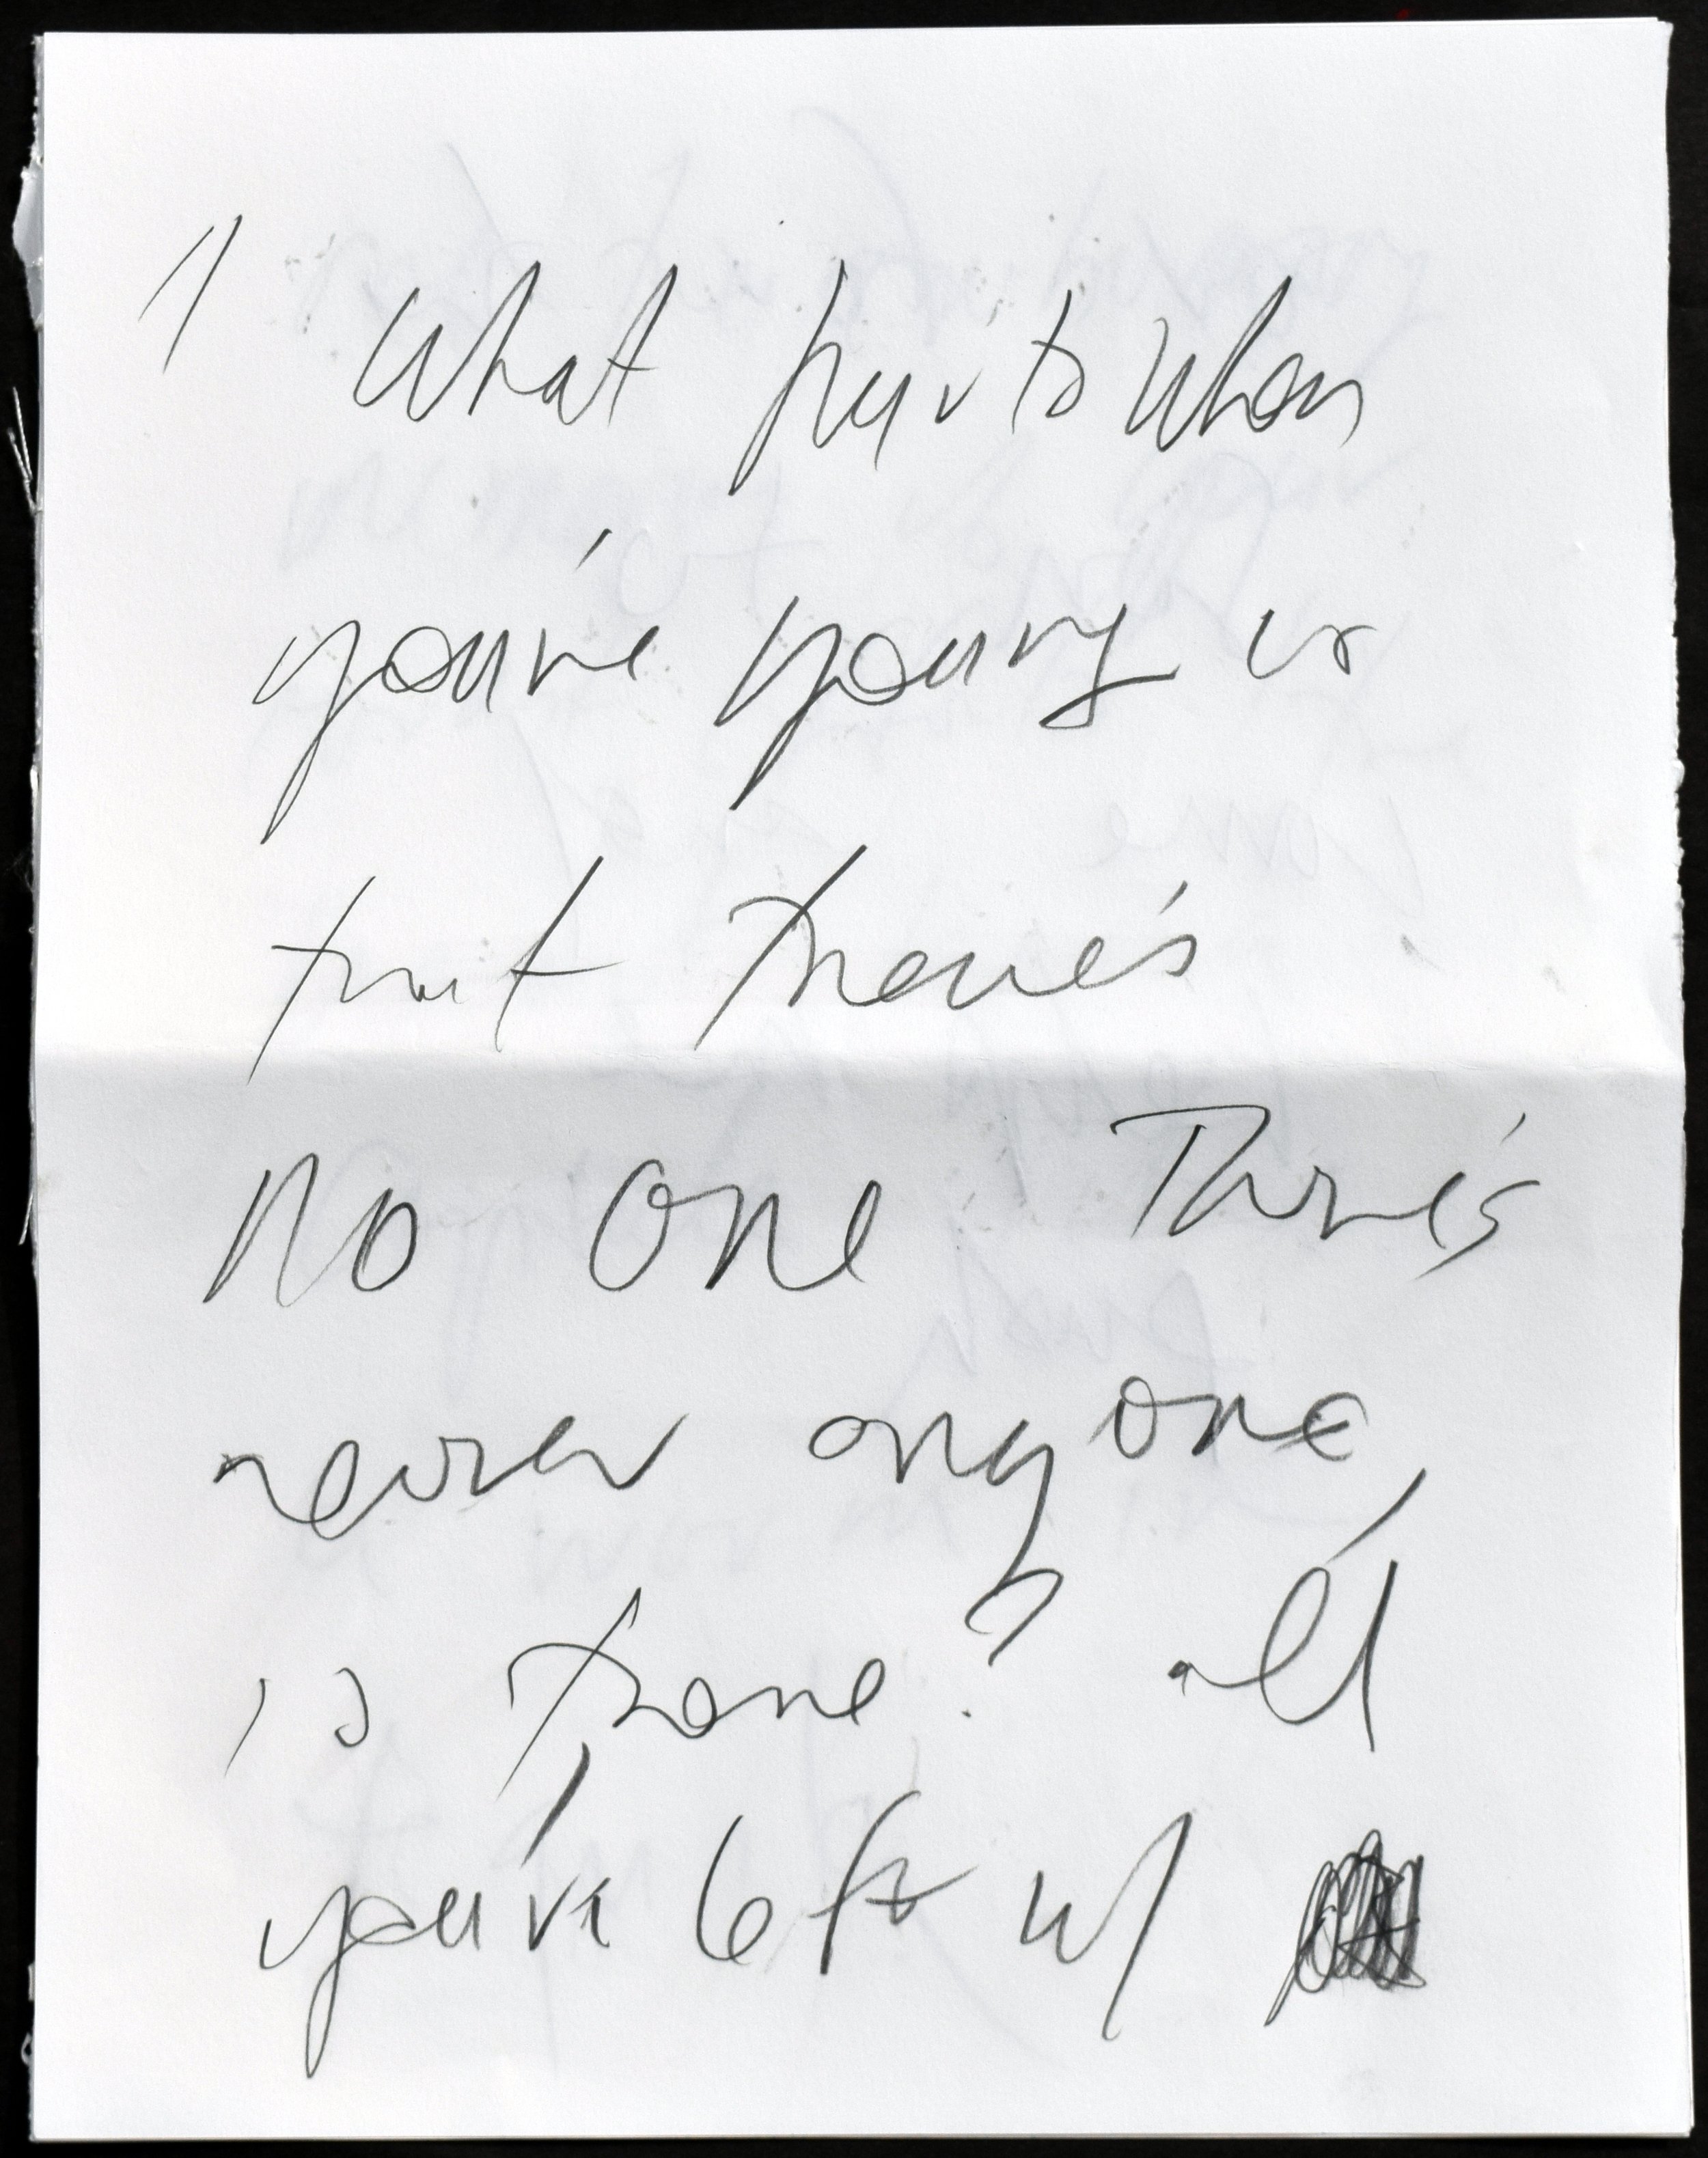 " What hurts when
you're young is
that there's
no one There's
never anyone,
is there? all
you're left w/